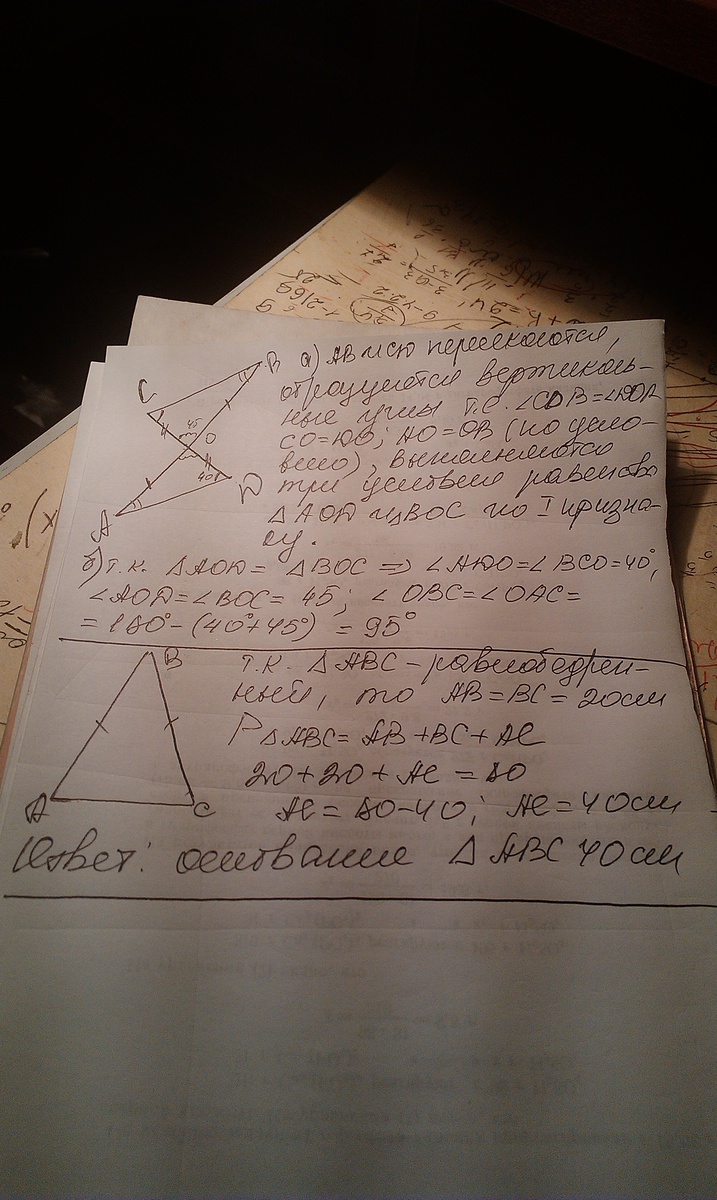 B
C
45
O
40°
D
A
а) AB и CD пересекаются,
образуются вертикаль-
ные углы т.е. ∠COB=∠AOD
CO=DO; AO=OB (по усло-
вию), выполняются
три условия равенства
△AOD и △BOC по I призна-
ку.
б) т.к. △AOD = △BOC => ∠ADO=∠BCO=40°,
∠AOD=∠BOC= 45°; ∠OBC=∠OAC=
= 180° - (40°+45°) = 95°
B
A
C
т.к. △ABC - равнобедрен-
ный, то AB=BC=20см
P△ABC= AB+BC+AC
20+20+AC = 80
AC = 80-40; AC=40см
Ответ: основание △ABC 40см